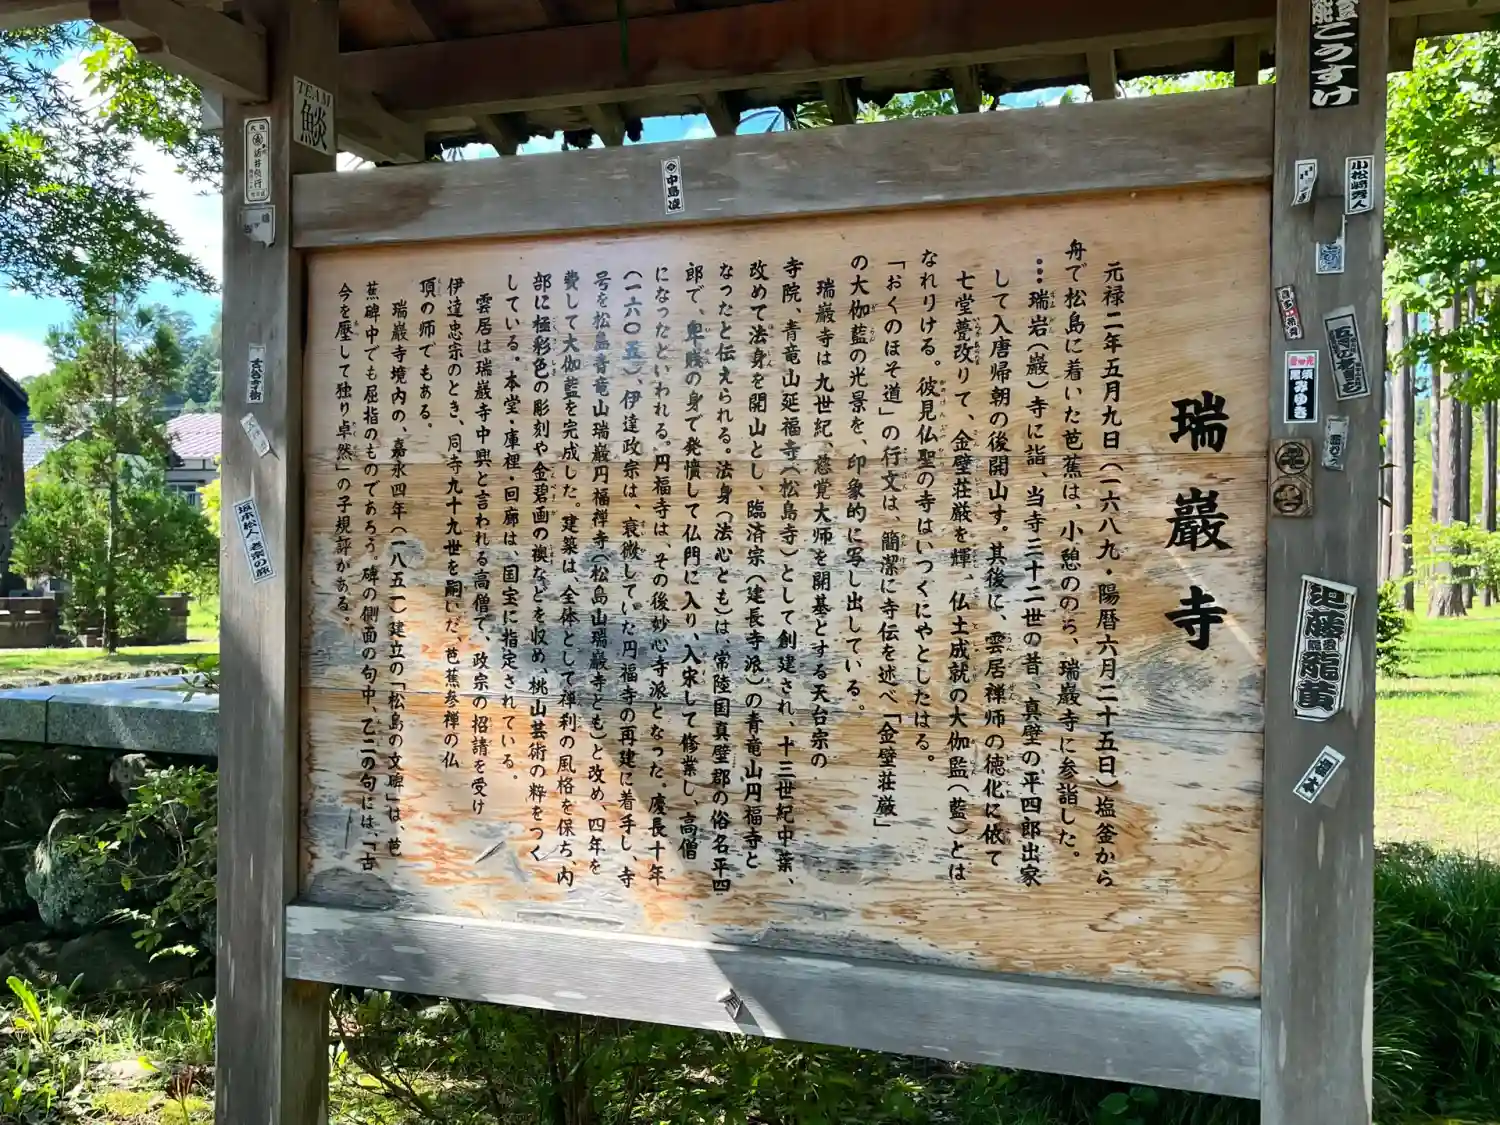 瑞巖寺
元禄二年五月九日(一六八九・陽暦六月二十五日)塩釜から
舟で松島に着いた芭蕉は、小憩ののち、瑞巖寺に参詣した。
…瑞岩(巖)寺に詣、当寺三十二世の昔、真壁の平四郎出家
して入唐帰朝の後開山す。其後に、雲居禅師の徳化に依て
七堂甍改りて、金壁荘厳を輝、仏土成就の大伽監(藍)とは
なれりける。彼見仏聖の寺はいつくにやとしたはる。
「おくのほそ道」の行文は、簡潔に寺伝を述べ「金壁荘厳」
の大伽藍の光景を、印象的に写し出している。
瑞巖寺は九世紀、慈覚大師を開基とする天台宗の
寺院、青竜山延福寺(松島寺)として創建され、十三世紀中葉、
改めて法身を開山とし、臨済宗(建長寺派)の青竜山円福寺と
なったと伝えられる。法身(法心とも)は、常陸国真壁郡の俗名平四
郎で、卑賤の身で発憤して仏門に入り、入宋して修業し、高僧
になったといわれる。円福寺は、その後妙心寺派となった。慶長十年
(一六〇五)、伊達政宗は、衰微していた円福寺の再建に着手し、寺
号を松島青竜山瑞巖円福禅寺(松島山瑞巖寺とも)と改め、四年を
費して大伽藍を完成した。建築は、全体として禅刹の風格を保ち、内
部に極彩色の彫刻や金碧画の襖などを収め、桃山芸術の粋をつく
している。本堂・庫裡・回廊は、国宝に指定されている。
雲居は瑞巖寺中興と言われる高僧で、政宗の招請を受け
伊達忠宗のとき、同寺九十九世を嗣いだ。芭蕉参禅の仏
頂の師でもある。
瑞巖寺境内の、嘉永四年(一八五一)建立の「松島の文碑」は、芭
蕉碑中でも屈指のものであろう。碑の側面の句中、乙二の句には、「古
今を壓して独り卓然」の子規評がある。
TEAM
鮫
中島
小松崎秀人
能登こうすけ
近藤龍童
坂本松人